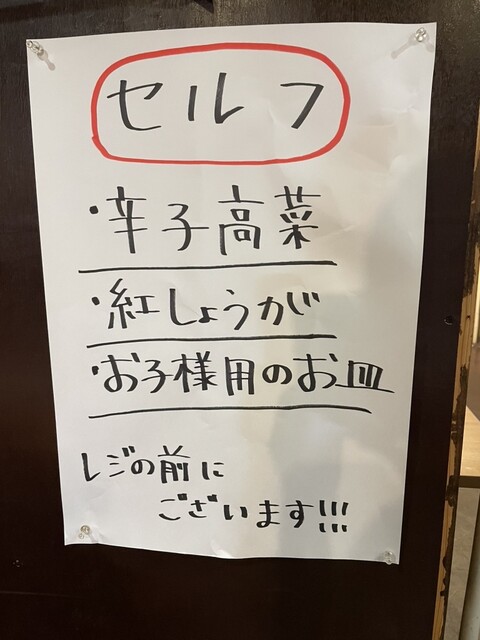 セルフ
・辛子高菜
・紅しょうが
・お子様用のお皿
レジの前に
ございます!!!